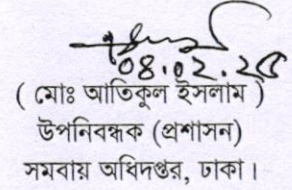 ০৪.০২.২৫
( মোঃ আতিকুল ইসলাম )
উপনিবন্ধক (প্রশাসন)
সমবায় অধিদপ্তর, ঢাকা।